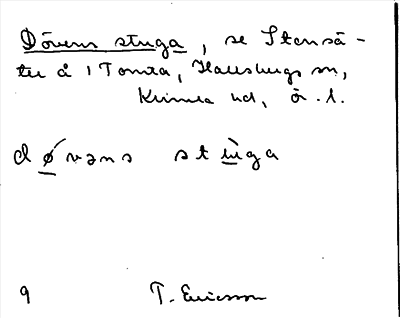 Dövens stuga, se Stensä-
ter å 1 Tomta, Hallsbergs sn,
Kumla hd, ör. l.
dǿvəns stùga
9 T. Ericsson